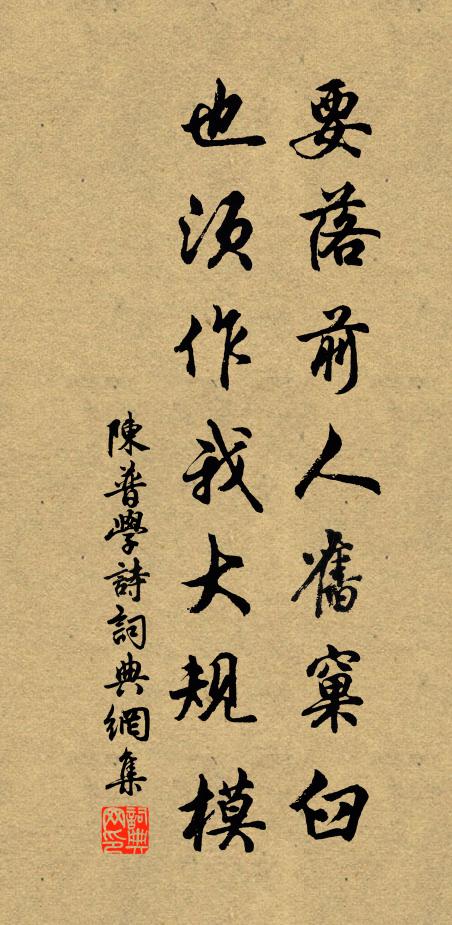 要落前人舊窠臼
也須作我大規模
陳普學詩詞典網集
詞典網印